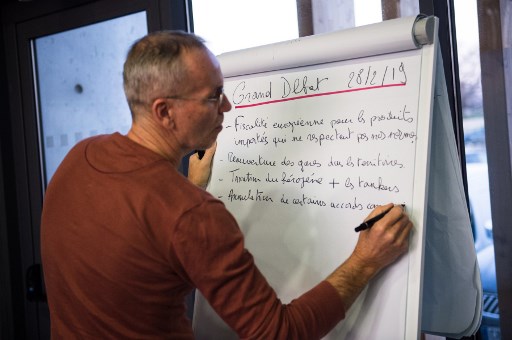 Grand Débat 28/2/19
- Fiscalité européenne pour les produits
importés qui ne respectent pas nos
- Réouverture des gares dans les territoires
- Taxation du kérozène + les tankers
- Annulation de certaines accords com